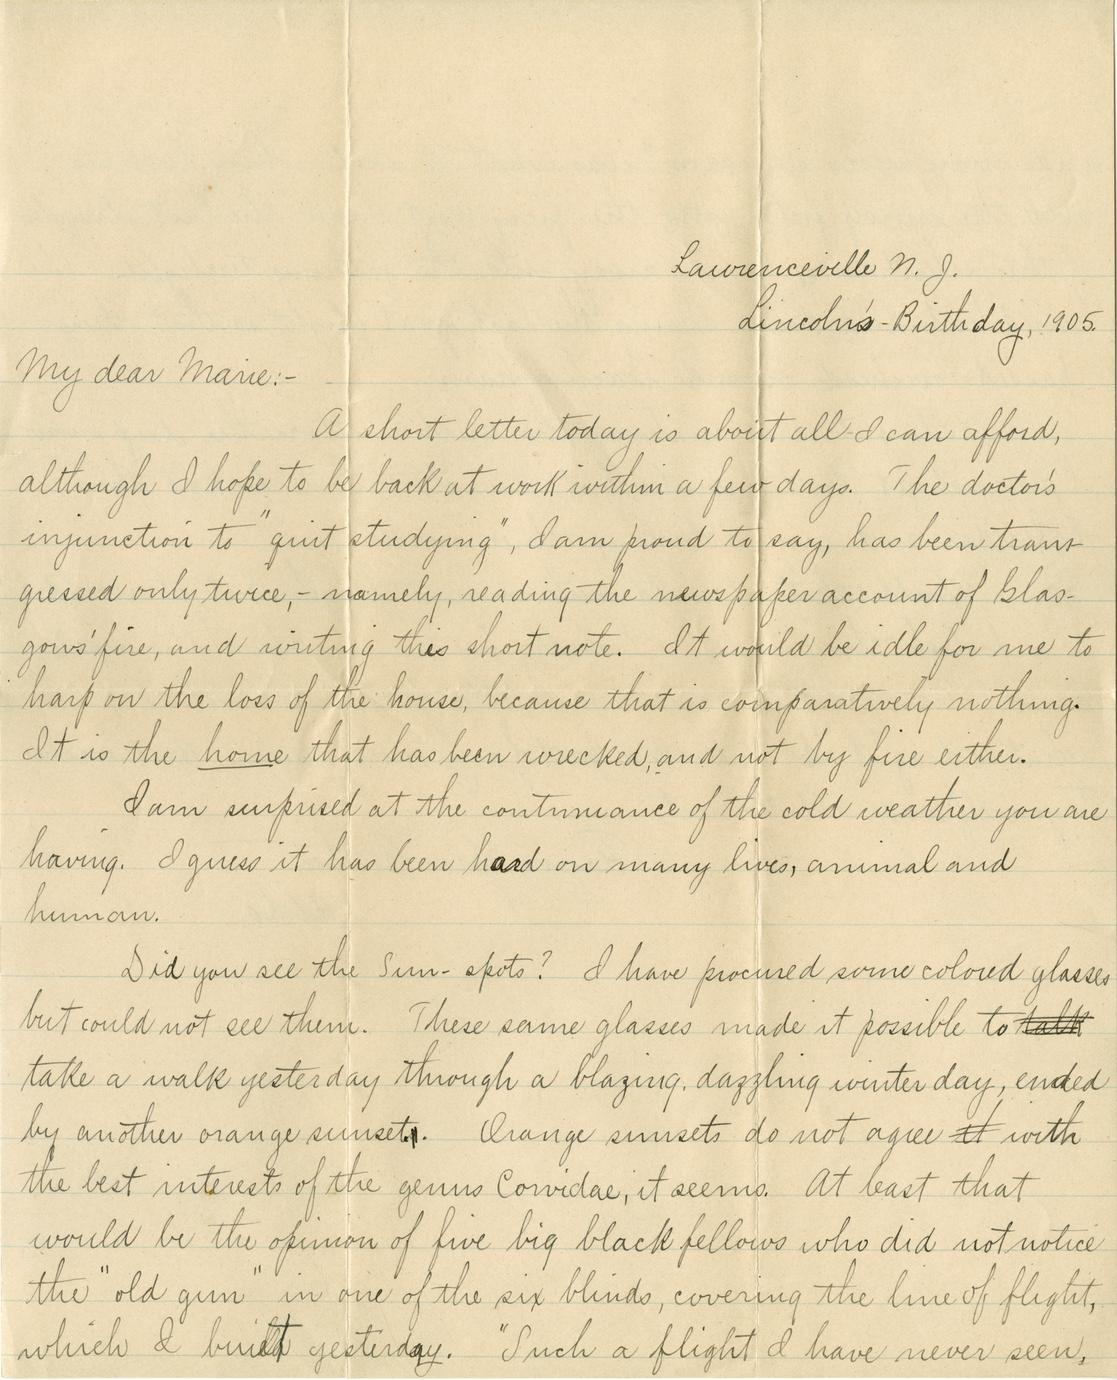 Lawrenceville N. J.
Lincoln's-Birthday, 1905.
My dear Marie:-
A short letter today is about all I can afford,
although I hope to be back at work within a few days. The doctor's
injunction to "quit studying", I am proud to say, has been trans-
gressed only twice,- namely, reading the newspaper account of Glas-
gows' fire, and writing this short note. It would be idle for me to
harp on the loss of the house, because that is comparatively nothing.
It is the home that has been wrecked, and not by fire either.
I am surprised at the continuance of the cold weather you are
having. I guess it has been hard on many lives, animal and
human.
Did you see the Sun-spots? I have procured some colored glasses
but could not see them. These same glasses made it possible to talk
take a walk yesterday through a blazing, dazzling winter day, ended
by another orange sunset. Orange sunsets do not agree it with
the best interests of the genus Corvidae, it seems. At least that
would be the opinion of five big black fellows who did not notice
the "old gun" in one of the six blinds, covering the line of flight,
which I built yesterday. "Such a flight I have never seen,